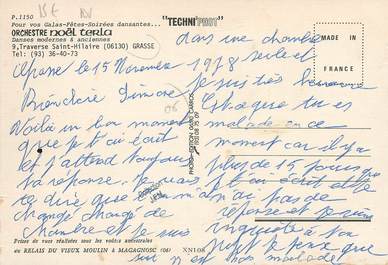 P.1150
Pour vos Galas-Fêtes-Soirées dansantes...
ORCHESTRE noël cerla
Danses modernes & anciennes
9,Traverse Saint-Hilaire (06130) GRASSE
Tel: (93) 36-40-73
"TECHNI'PHOT"
MADE IN
FRANCE
Grasse le 15 Novembre 1978
Bien chère Simone
Voilà un bon moment
que je t'ai écrit
et j'attend toujours
ta réponse. Je vais
te dire que
changé de
chambre et je suis
dans une chambre
seule et
je suis très heureuse
Est ce que tu es
malade en ce
moment car il y a
plus de 15 jours que
je t'ai écrit et
pas de
réponse et je suis
inquiète à ton
sujet je peux que
tu n'es malade
Prises de vues réalisées sous les voûtes ancestrales
du RELAIS DU VIEUX MOULIN à MAGAGNOSC (06) XN108